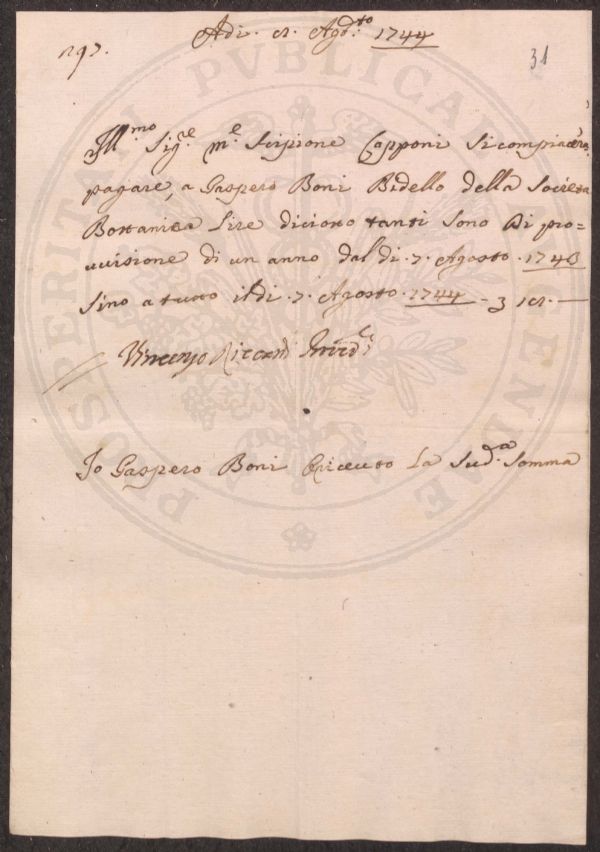 Adi. 12. Agos.to 1744
297.
31
Ill.mo Sig.e M.e Scipione Capponi si compiacerà
pagare, a Gaspero Boni Bidello della Società
Bottanica Lire diciotto tanti sono di pro=
uuisione di un anno dal dì .7. Agosto .1743
sino a tutto il dì .7. Agosto .1744
Gaspero Boni
Io Gaspero Boni ò riceuuto la Sud.a Somma
PROSPERITATI PVBLICAE AVGENDAE